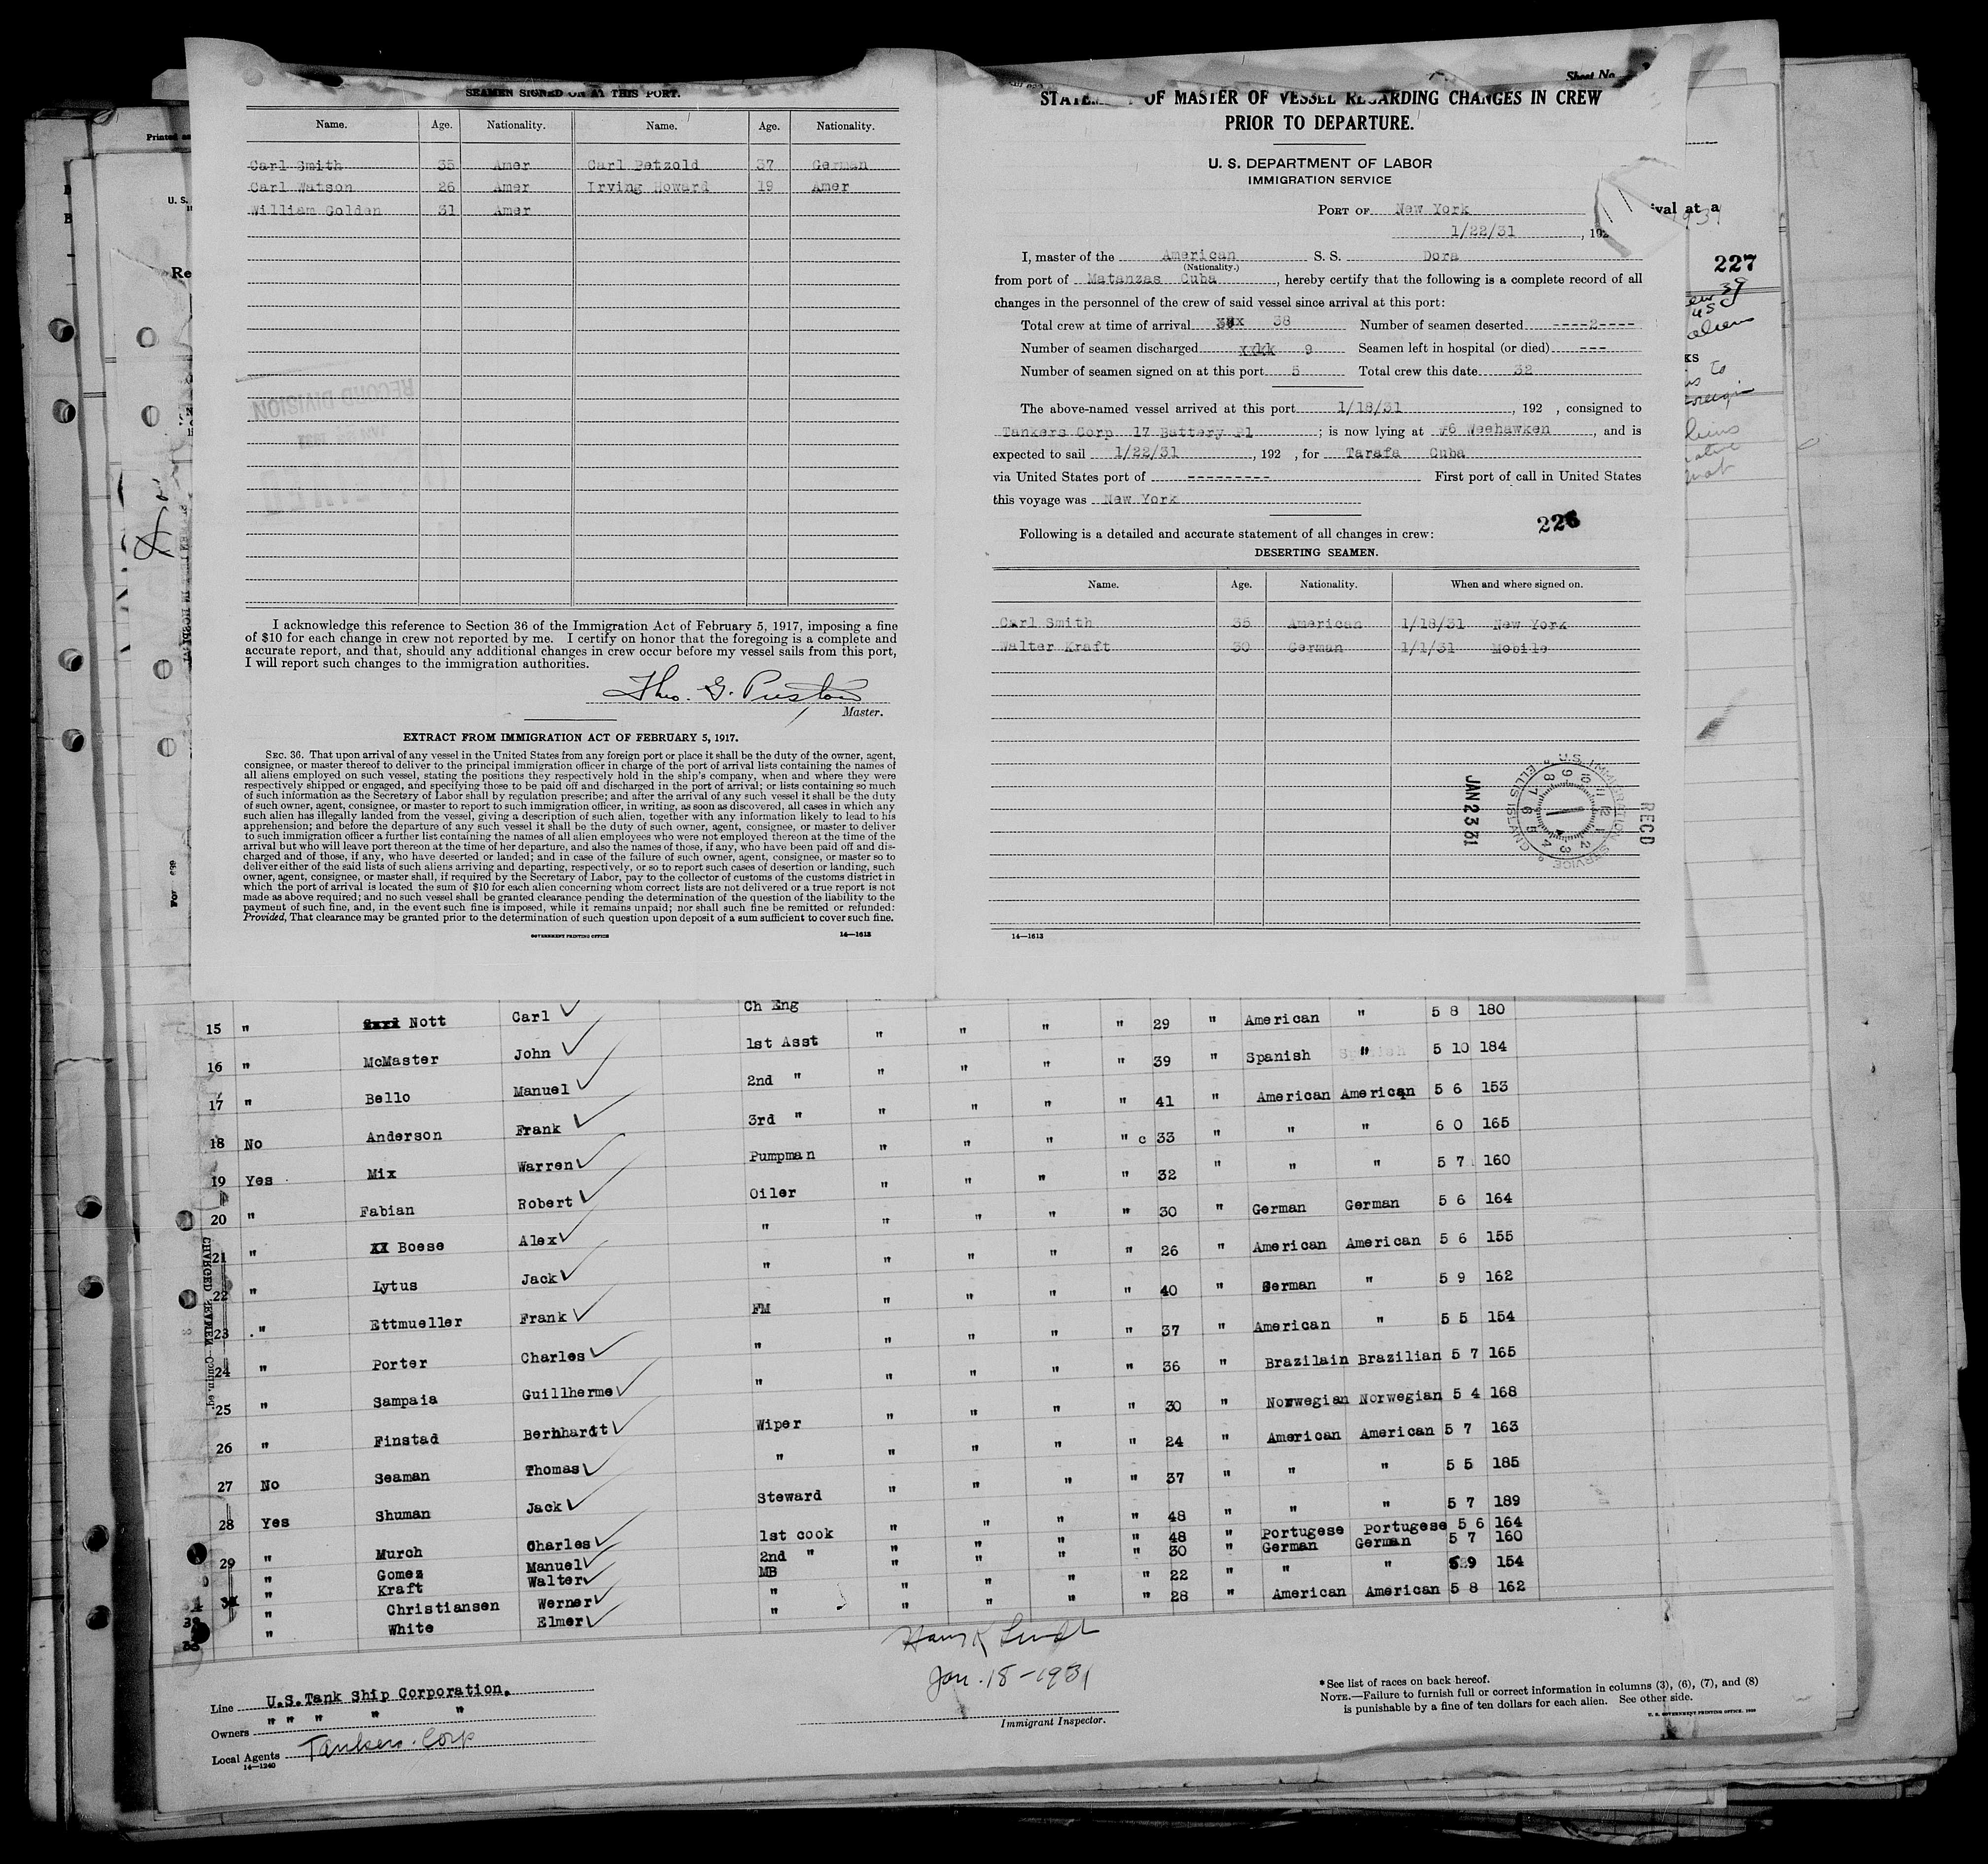 SEAMEN SIGNED ON AT THIS PORT.
Name. Age. Nationality. Name. Age. Nationality.
Carl Smith 35 Amer Carl Petzold 37 German
Carl Watson 26 Amer Irving Howard 19 Amer
William Golden 31 Amer
RECORD DIVISION
I acknowledge this reference to Section 36 of the Immigration Act of February 5, 1917, imposing a fine
of $10 for each change in crew not reported by me. I certify on honor that the foregoing is a complete and
accurate report, and that, should any additional changes in crew occur before my vessel sails from this port,
I will report such changes to the immigration authorities.
Theo. G. Preston
Master.
EXTRACT FROM IMMIGRATION ACT OF FEBRUARY 5, 1917.
SEC. 36. That upon arrival of any vessel in the United States from any foreign port or place it shall be the duty of the owner, agent,
consignee, or master thereof to deliver to the principal immigration officer in charge of the port of arrival lists containing the names of
all aliens employed on such vessel, stating the positions they respectively hold in the ship's company, when and where they were
respectively shipped or engaged, and specifying those to be paid off and discharged in the port of arrival; or lists containing so much
of such information as the Secretary of Labor shall by regulation prescribe; and after the arrival of any such vessel it shall be the duty
of such owner, agent, consignee, or master to report to such immigration officer, in writing, as soon as discovered, all cases in which any
such alien has illegally landed from the vessel, giving a description of such alien, together with any information likely to lead to his
apprehension; and before the departure of any such vessel it shall be the duty of such owner, agent, consignee, or master to deliver
to such immigration officer a further list containing the names of all alien employees who were not employed thereon at the time of the
arrival but who will leave port thereon at the time of her departure, and also the names of those, if any, who have been paid off and dis-
charged and of those, if any, who have deserted or landed; and in case of the failure of such owner, agent, consignee, or master so to
deliver either of the said lists of such aliens arriving and departing, respectively, or so to report such cases of desertion or landing, such
owner, agent, consignee, or master shall, if required by the Secretary of Labor, pay to the collector of customs of the customs district in
which the port of arrival is located the sum of $10 for each alien concerning whom correct lists are not delivered or a true report is not
made as above required; and no such vessel shall be granted clearance pending the determination of the question of the liability to the
payment of such fine, and, in the event such fine is imposed, while it remains unpaid; nor shall such fine be remitted or refunded:
Provided, That clearance may be granted prior to the determination of such question upon deposit of a sum sufficient to cover such fine.
GOVERNMENT PRINTING OFFICE 14—1613
Sheet No.
OF MASTER OF VESSEL REGARDING CHANGES IN CREW
PRIOR TO DEPARTURE.
U. S. DEPARTMENT OF LABOR
IMMIGRATION SERVICE
PORT OF New York
1/22/31 , 192
I, master of the American S. S. Dora
(Nationality.)
from port of Matanzas Cuba , hereby certify that the following is a complete record of all
changes in the personnel of the crew of said vessel since arrival at this port:
Total crew at time of arrival 38 Number of seamen deserted ----2----
Number of seamen discharged 9 Seamen left in hospital (or died) ---
Number of seamen signed on at this port 5 Total crew this date 32
The above-named vessel arrived at this port 1/18/31 , 192 , consigned to
Tankers Corp 17 Battery Pl ; is now lying at #6 Weehawken , and is
expected to sail 1/22/31 , 192 , for Tarafa Cuba
via United States port of --------- First port of call in United States
this voyage was New York
226
Following is a detailed and accurate statement of all changes in crew:
DESERTING SEAMEN.
Name. Age. Nationality. When and where signed on.
Carl Smith 35 American 1/18/31 New York
Walter Kraft 30 German 1/1/31 Mobile
RECD
U.S. IMMIGRATION SERVICE ELLIS ISLAND
JAN 23 31
14—1613
227
15 " Nott Carl Ch Eng " " " " 29 " American " 5 8 180
16 " McMaster John 1st Asst " " " " 39 " Spanish " 5 10 184
17 " Bello Manuel 2nd " " " " " 41 " American American 5 6 153
18 No Anderson Frank 3rd " " " " " c 33 " " " 6 0 165
19 Yes Mix Warren Pumpman " " " " 32 " " " 5 7 160
20 " Fabian Robert Oiler " " " " 30 " German German 5 6 164
21 " Boese Alex " " " " " 26 " American American 5 6 155
22 " Lytus Jack " " " " " 40 " German " 5 9 162
23 " Ettmueller Frank FM " " " " 37 " American " 5 5 154
24 " Porter Charles " " " " " 36 " Brazilain Brazilian 5 7 165
25 " Sampaia Guillherme " " " " " 30 " Norwegian Norwegian 5 4 168
26 " Finstad Bernhardt Wiper " " " " 24 " American American 5 7 163
27 No Seaman Thomas " " " " " 37 " " " 5 5 185
28 Yes Shuman Jack Steward " " " " 48 " " " 5 7 189
29 " Murch Charles 1st cook " " " " 48 " Portugese Portugese 5 6 164
" Gomez Manuel 2nd " " " " " 30 " German German 5 7 160
" Kraft Walter MB " " " " 22 " " " 5 9 154
" Christiansen Werner " " " " " 28 " American American 5 8 162
" White Elmer "
Jan. 18-1931
Immigrant Inspector.
Line U.S.Tank Ship Corporation.
Owners " " " " "
Local Agents Tankers. Corp
14—1240
*See list of races on back hereof.
NOTE.—Failure to furnish full or correct information in columns (3), (6), (7), and (8)
is punishable by a fine of ten dollars for each alien. See other side.
U. S. GOVERNMENT PRINTING OFFICE: 1930